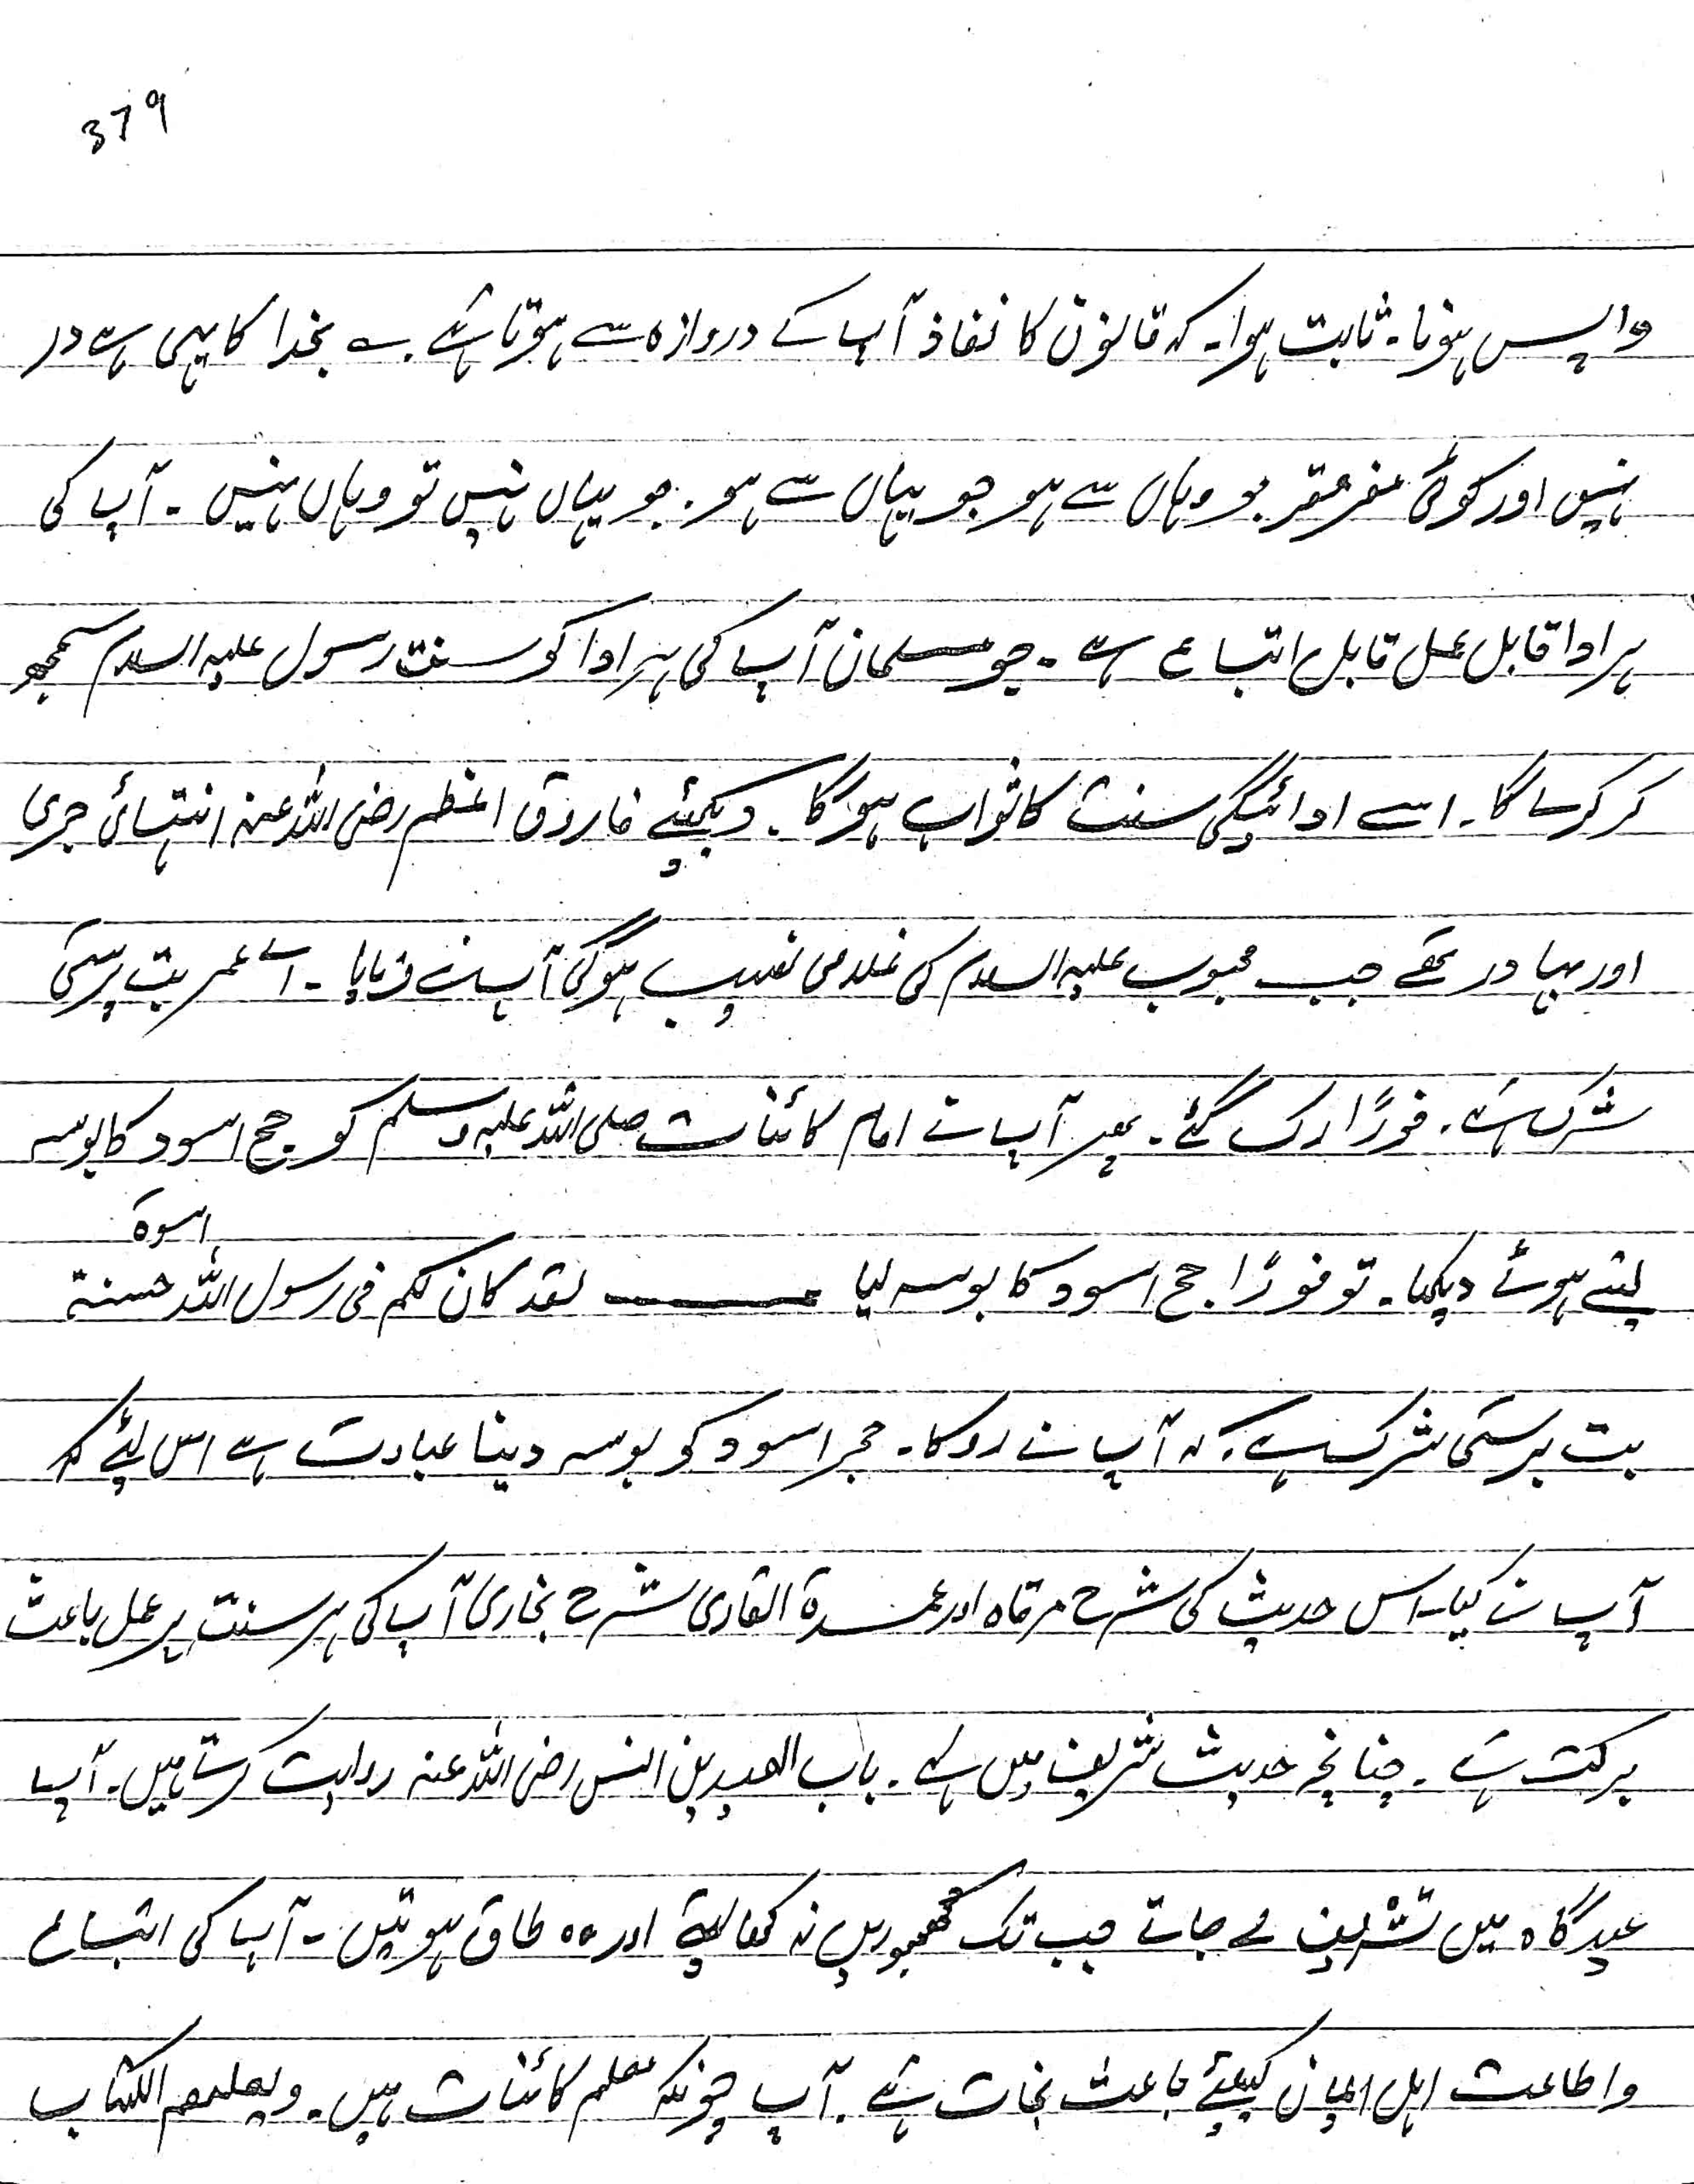 379
واپس ہونا۔ ثابت ہوا۔ کہ قانون کا نفاذ آپ کے دروازہ سے ہوتا ہے۔ ؎ بخدا کا یہی ہے در
نہیں اور کوئی مفر مقر جو وہاں سے ہو جو یہاں سے ہو۔ جو یہاں نہیں تو وہاں نہیں ۔ آپ کی
ہر ادا قابل عمل قابل اتباع ہے ۔ جو مسلمان آپ کی ہر ادا کو سنت رسول علیہ السلام سمجھ
کر کرے گا۔ اسے ادائیگی سنت کا ثواب ہوگا ۔ دیکھئے فاروق اعظم رضی اللہ عنہ انتہائی جری
اور بہادر تھے جب محبوب علیہ السلام کی غلامی نصیب ہوگی آپ نے فرمایا ۔ اے عمر بت پرستی
شرک ہے ۔ فوراً رک گئے ۔ پھر آپ نے امام کائنات صلی اللہ علیہ وسلم کو حج اسود کا بوسہ
لیتے ہوئے دیکھا ۔ تو فوراً حج اسود کا بوسہ لیا ـــــــ لقد کان لکم فی رسول اللہ اسوۃ حسنۃ
بت پرستی شرک ہے ۔ کہ آپ نے روکا ۔ حجر اسود کو بوسہ دینا عبادت ہے اس لئے کہ
آپ نے کیا۔ اس حدیث کی شرح مرقاہ اور عمدۃ القاری شرح بخاری آپ کی ہر سنت پر عمل باعث
برکت ہے ۔ چنانچہ حدیث شریف میں ہے ۔ باب العیدین انس رضی اللہ عنہ روایت کرتے ہیں ۔ آپ
عیدگاہ میں تشریف لے جاتے جب تک کھجوریں نہ کھا لیتے اور وہ طاق ہوتیں ۔ آپ کی اتباع
و اطاعت اہل ایمان کیلئے باعث نجات ہے ۔ آپ چونکہ معلم کائنات ہیں ۔ ویعلمھم الکتاب